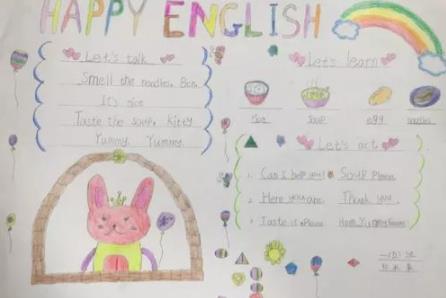 HAPPY ENGLISH
Let's talk
Smell the noodles, Ben.
It's nice
Taste the soup, Kitty
Yummy, Yummy.
Let's learn
rice soup egg noodles
Let's act
1. Can I help you? Soup Please.
2. Here you are. Thank you.
3. Taste it Please Hmm Yummy Yummy